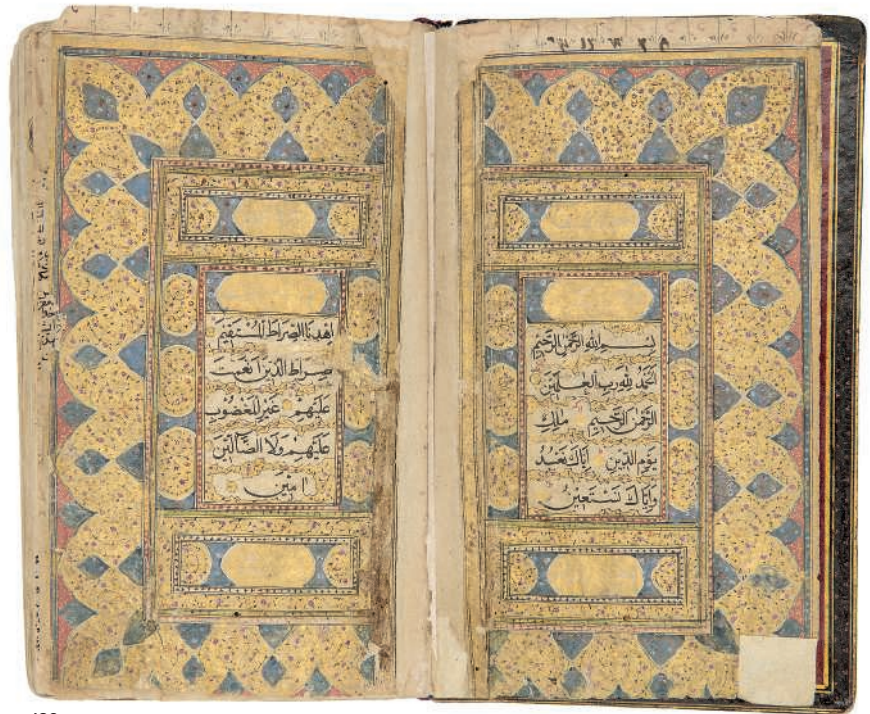 بسم الله الرحمن الرحيم
الحمد لله رب العلمين
الرحمن الرحيم ملك
يوم الدين اياك نعبد
واياك نستعين
اهدنا الصراط المستقيم
صراط الذين انعمت
عليهم غير المغضوب
عليهم ولا الضالين
امين